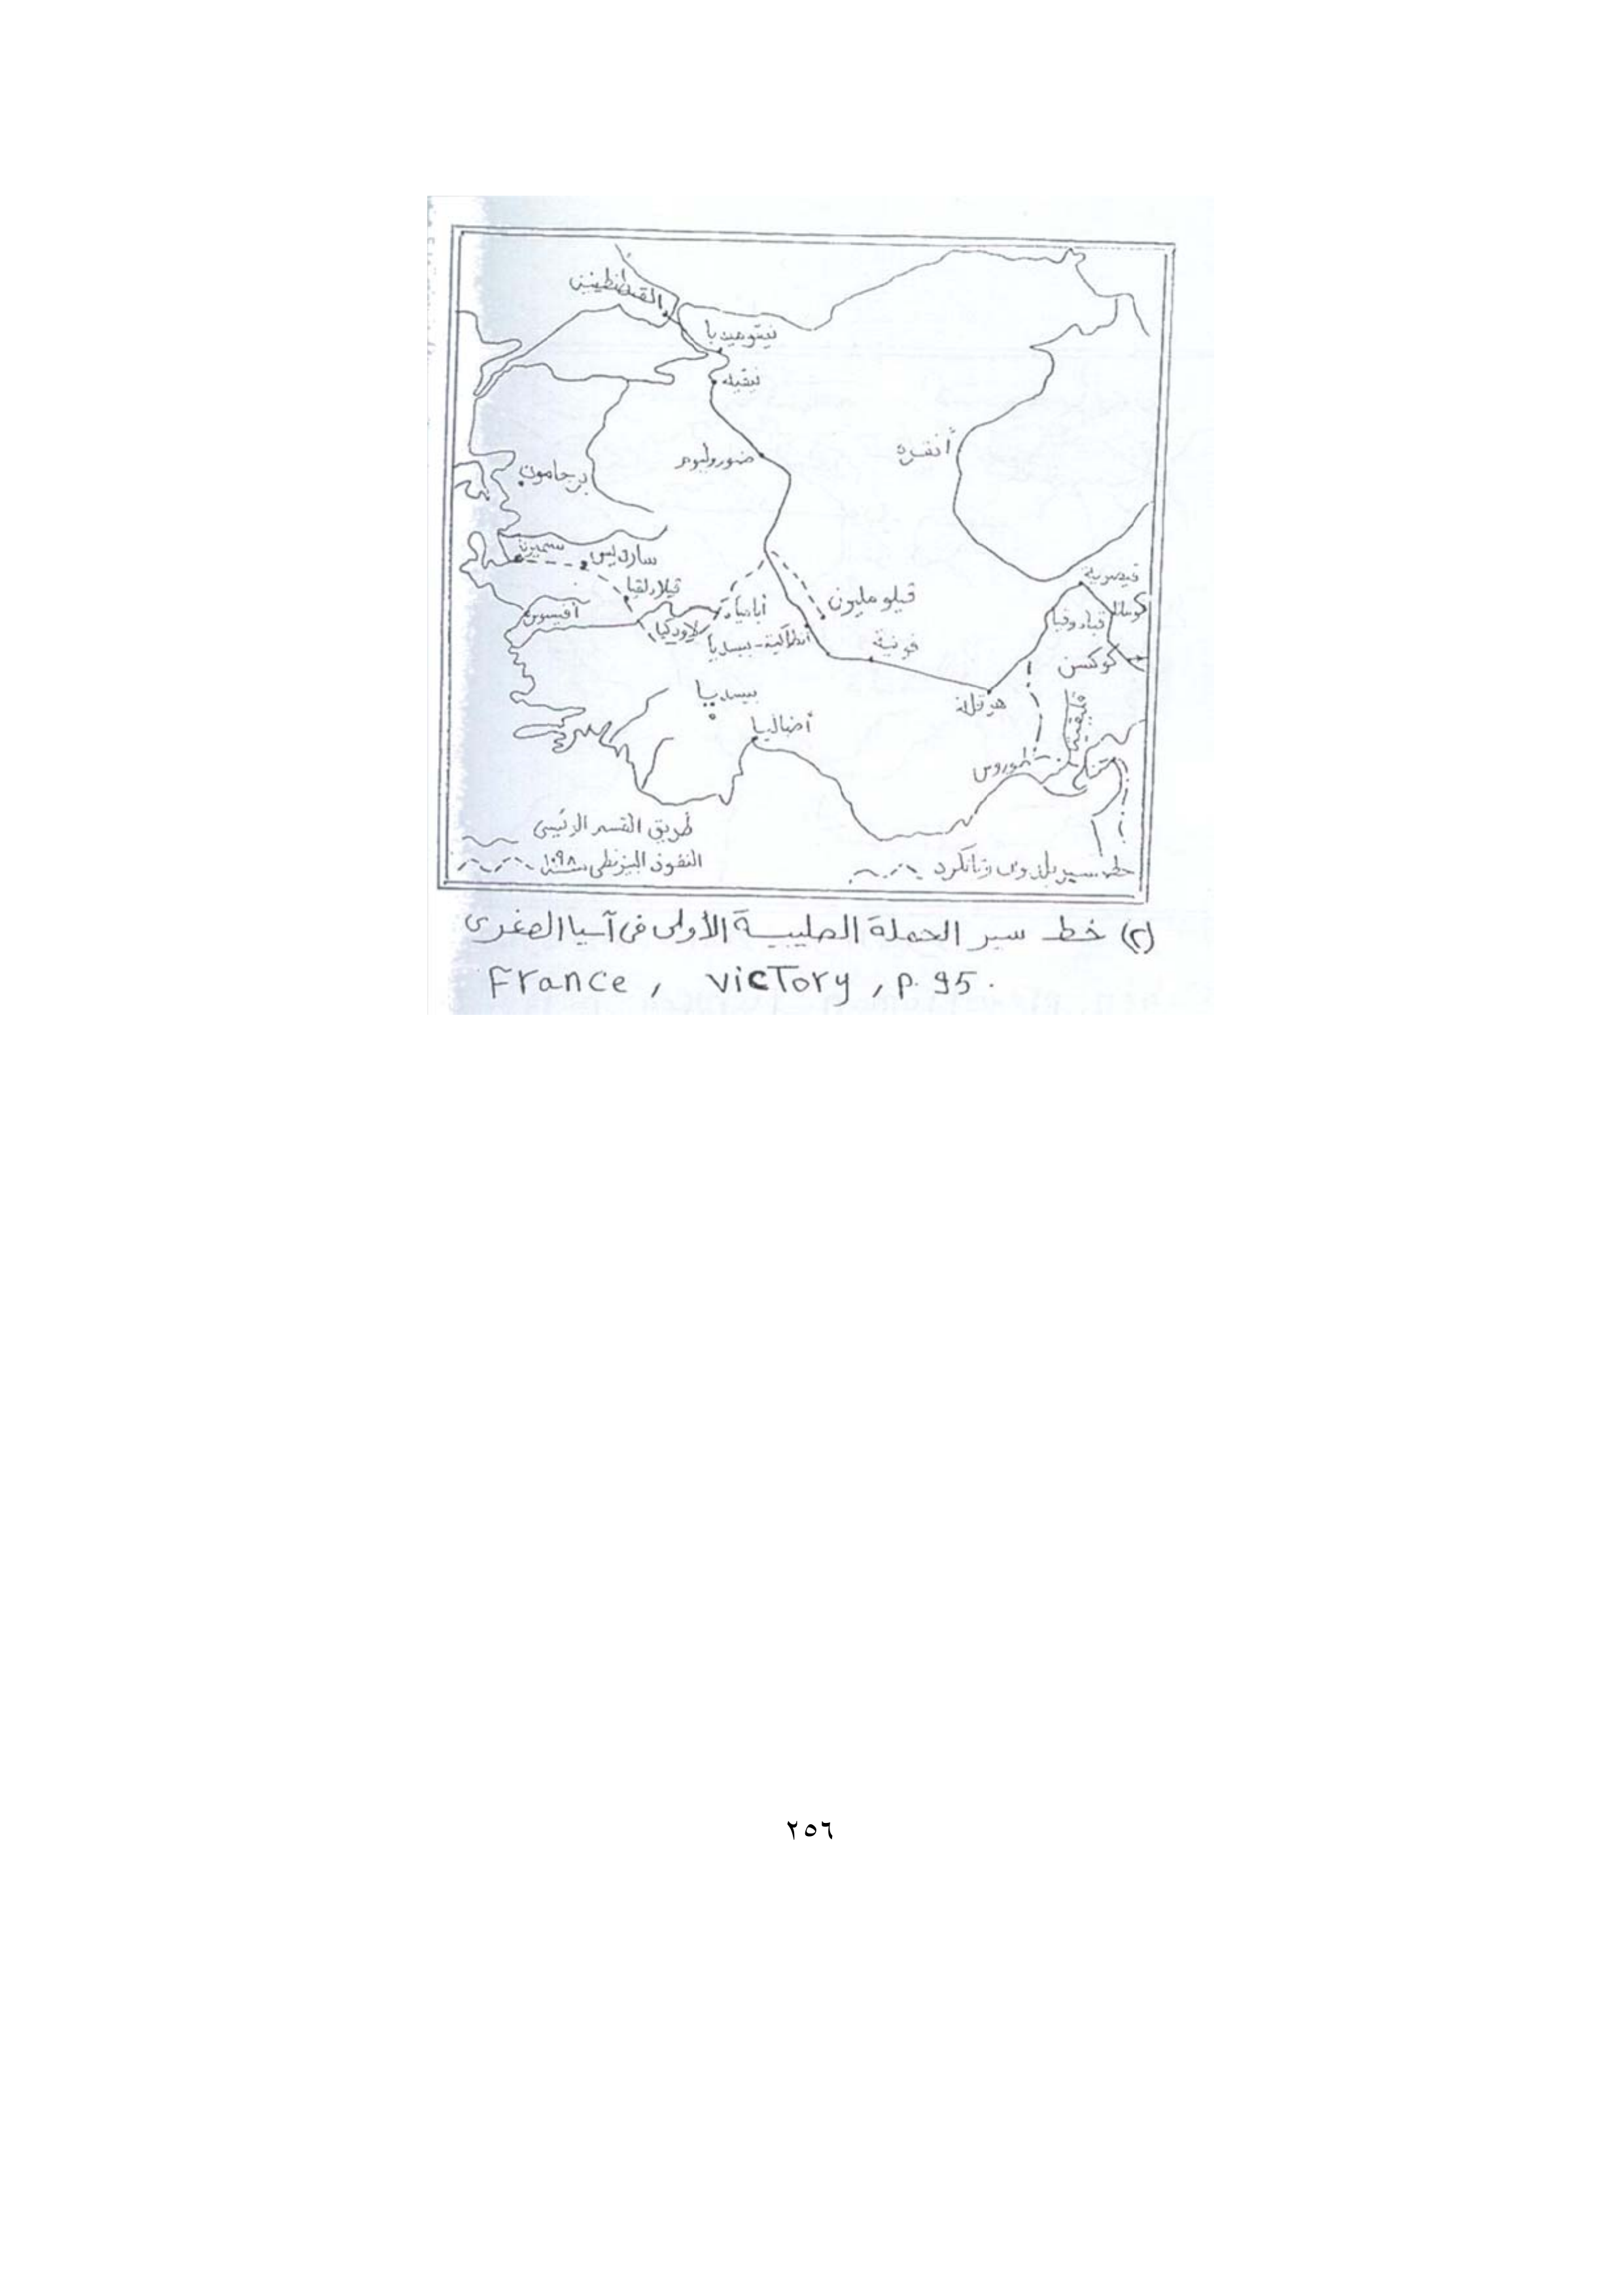 القسطنطينية
نيقوميديا
نيقيه
ضوروليوم
أنقره
برجامون
سميرنة
سارديس
فيلادلفيا
أفيسوس
لاوديكيا
أباميا
أنطاكية - بيسديا
فيلومليون
قونية
هرقلة
قيصرية
قبادوقيا
كوكسن
بيسديا
أضاليا
طريق القسم الرئيسى
النفوذ البيزنطى سنة ١٠٩٨
خط سير بلدوين وتانكرد
(٢) خط سير الحملة الصليبية الأولى فى آسيا الصغرى
France, victory, p. 95.
٢٥٦